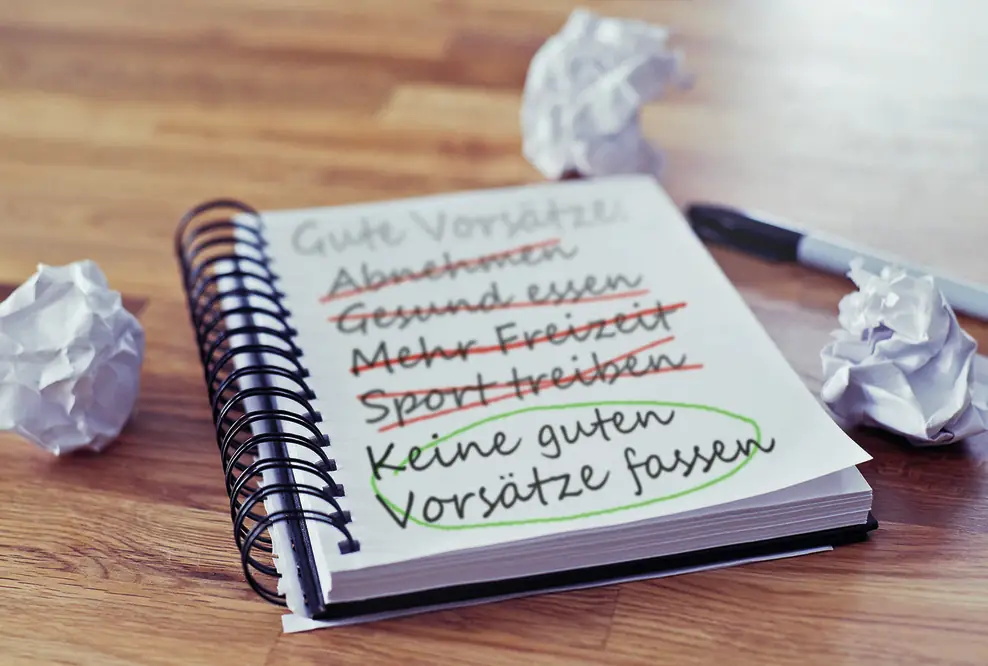 Gute Vorsätze:
Abnehmen
Gesund essen
Mehr Freizeit
Sport treiben
Keine guten
Vorsätze fassen